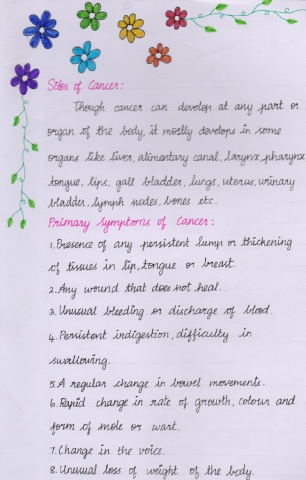 Sites of Cancer:
Though cancer can develop at any part or
organ of the body, it mostly develops in some
organs like liver, alimentary canal, larynx, pharynx
tongue, lips, gall bladder, lungs, uterus, urinary
bladder, lymph nodes, bones etc.
Primary Symptoms of Cancer:
1. Presence of any persistent lump or thickening
of tissues in lip, tongue or breast.
2. Any wound that does not heal.
3. Unusual bleeding or discharge of blood.
4. Persistent indigestion, difficulty in
swallowing.
5. A regular change in bowel movements.
6. Rapid change in rate of growth, colour and
form of mole or wart.
7. Change in the voice.
8. Unusual loss of weight of the body.